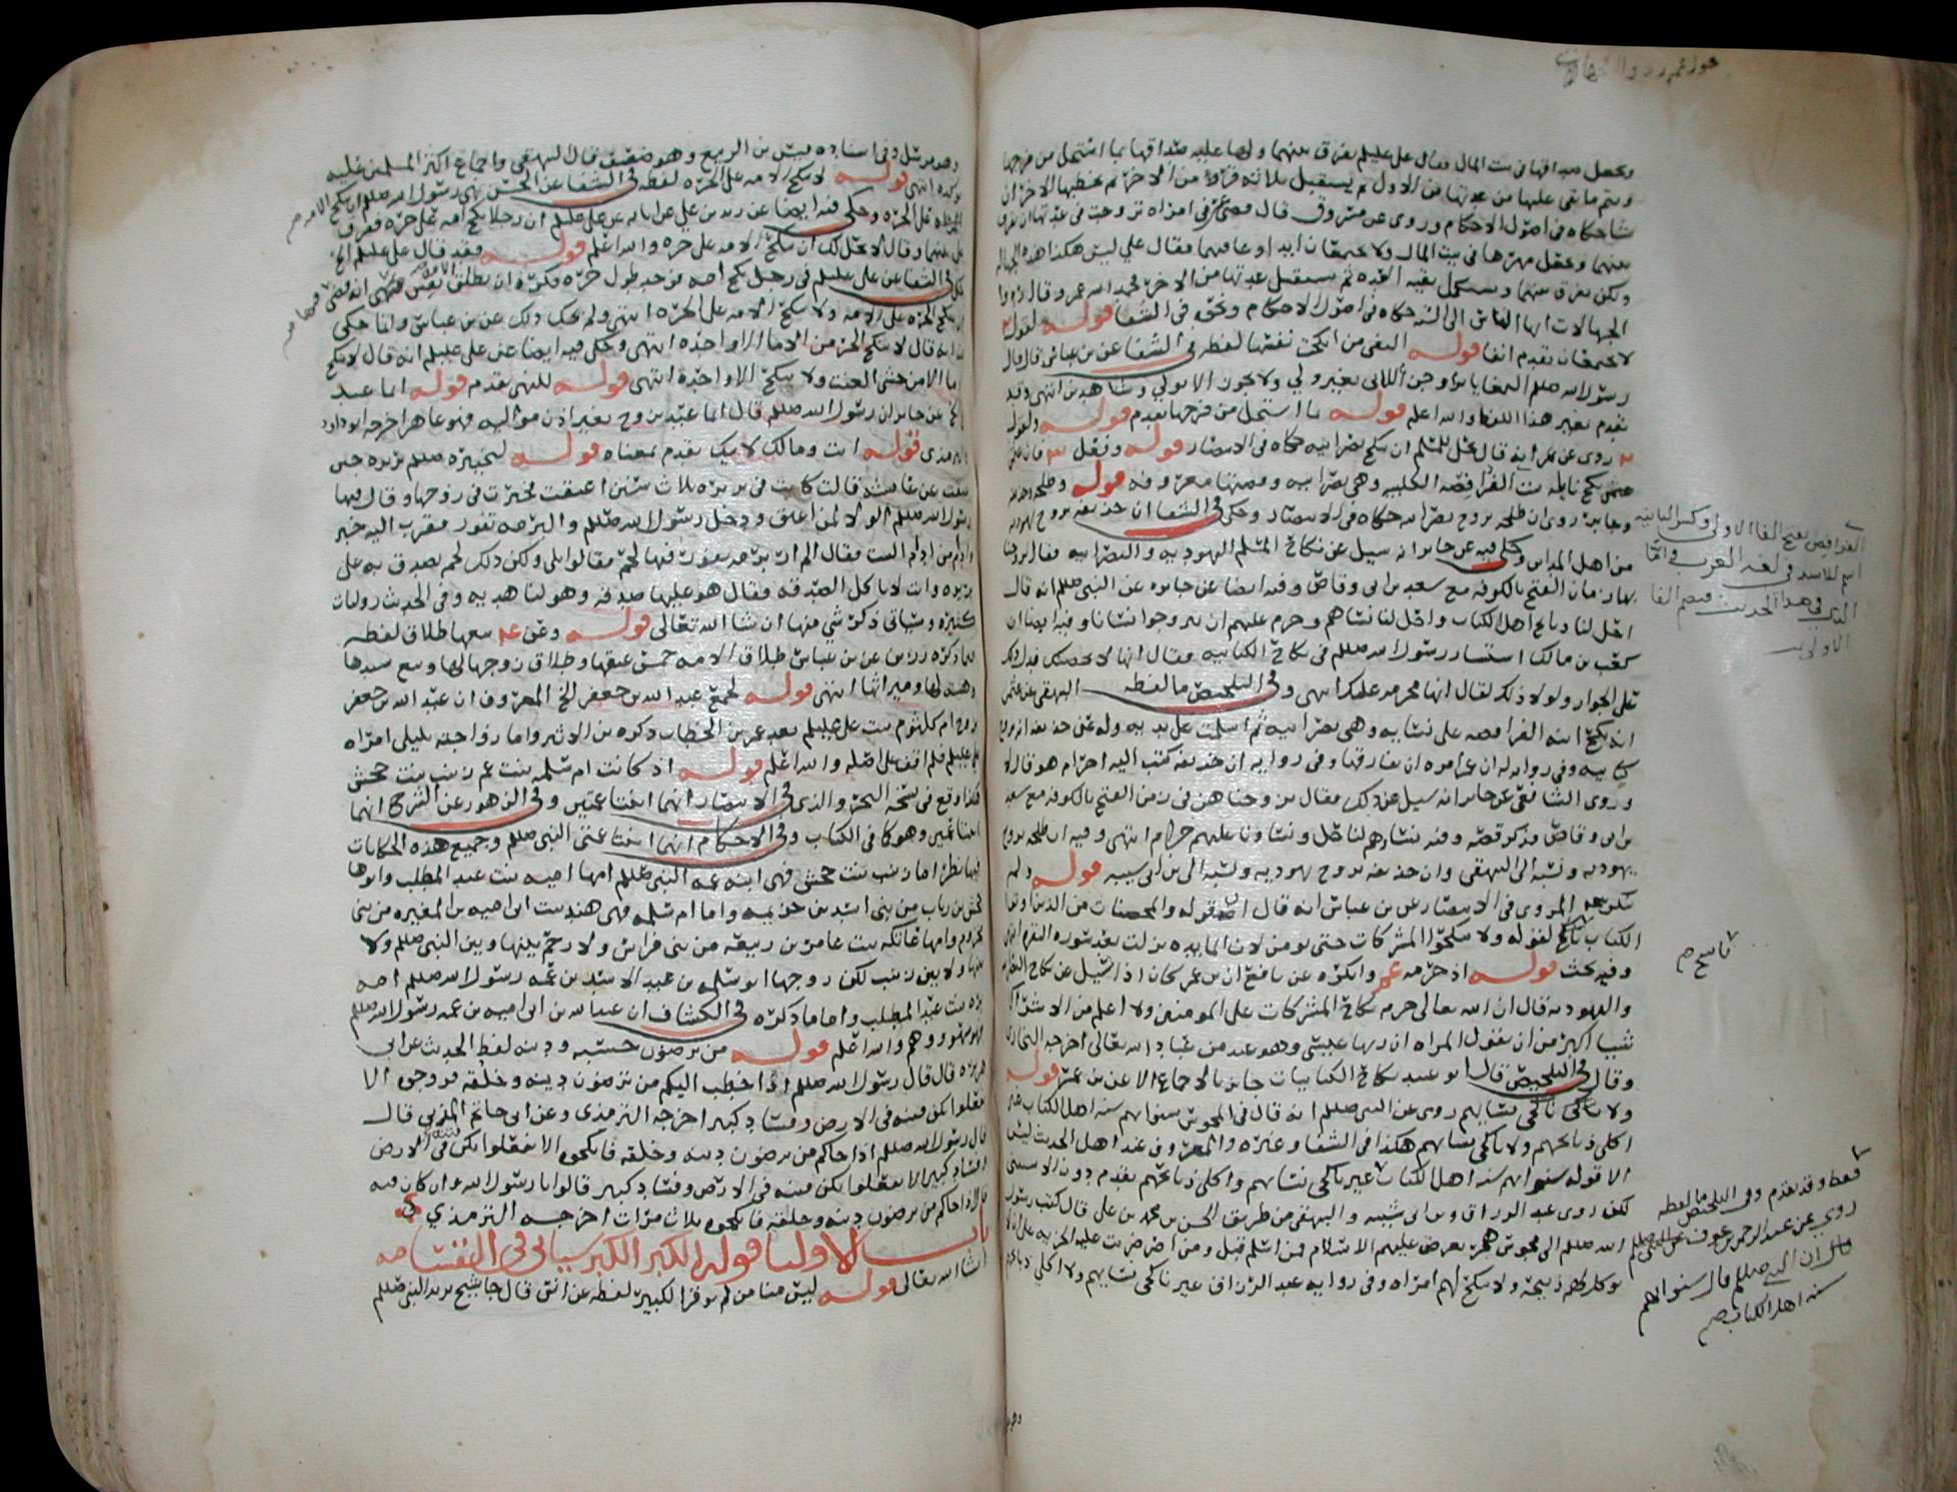 ويجعل صداقها في بيت المال فقال علي عليلم يفرق بينهما ولها عليه صداقها بما استحل من فرجها
ويتم ما بقي عليها من عدتها من الاول ثم يستقبل ثلاثة قروء من الاخر ثم يخطبها الاخر ان
شا حكاه في اصول الاحكام وروي عن مسروق قال قضى عمر في امراه تزوجت في عدتها ان يفرق
بينهما ويجعل مهرها في بيت المال ولا يجتمعان ابدا وعاقبهما فقال علي ليس هكذا هذه الجهاله
ولكن يفرق بينهما وتستكمل بقيه العده ثم تستقبل عدتها من الاخر فحمد الله عمر وقال ردوا
الجهالات ايها الناس الى السنه حكاه في اصول الاحكام ونحوه في الشفا قوله لقوله
لا يجتمعان تقدم انفا قوله البغي من انكحت نفسها لفظه في الشفا عن بن عباس قال قال
رسول الله صللم البغايا يزوجن اللاتي بغير ولي ولا يجوز الا بولي وشاهدين انتهى وقد
تقدم بغير هذا اللفظ والله اعلم قوله بما استحل من فرجها تقدم قوله ولقول
روي عن عمر انه قال يحل للمسلم ان ينكح نصرانيه حكاه في الانتصار قوله وفعل
عثمن نكح نايله بنت الفرافصه الكلبيه وهي نصرانيه وقصتها معروفه قوله وطلحه وحذيفه
وجابر روي ان طلحه تزوج نصرانيه حكاه في الانتصار وحكى في الشفا ان حذيفه تزوج يهوديه
من اهل المداين وحكي فيه عن جابر انه سيل عن نكاح المسلم اليهوديه والنصرانيه فقال تزوجنا
بهن زمان الفتح بالكوفه مع سعد بن ابي وقاص وفيه ايضا عن جابر عن النبي صللم انه قال
احل لنا ذبايح اهل الكتاب واحل لنا نساهم وحرم عليهم ان يتزوجوا نسانا وفيه ايضا ان
كعب بن مالك استشار رسول الله صللم في نكاح الكتابيه فقال انها لا تحصنك فدل ذلك
على الجواز ولولا ذلك لقال انها محرمه عليك انتهى وفي التلخيص ما لفظه البيهقي عن عثمن
انه نكح ابنه الفرافصه على نسايه وهي نصرانيه ثم اسلمت على يديه وله عن حذيفه انه تزوج
كتابيه وفي روايه له ان عمر امره ان يفارقها وفي روايه ان حذيفه كتب اليه احرام هو قال لا
وروى الشافعي عن جابر انه سيل عن ذلك فقال تزوجناهن في زمن الفتح بالكوفه مع سعد
بن ابي وقاص فذكر قصه وفيه نساوهم لنا حل ونساونا عليهم حرام انتهى وفيه ان طلحه تزوج
يهوديه ونسبه الى البيهقي وان حذيفه تزوج يهوديه ونسبه الى بن ابي شيبه قوله ولم
ينكر المروي في الانتصار عن بن عباس انه قال ان قوله والمحصنات من الذين اوتوا
الكتاب ناسخ لقوله ولا تنكحوا المشركات حتى يومن لان المايده نزلت بعد سوره البقره انتهى
وفيه بحث قوله اذ حرمه عمر وانكره عن نافع ان بن عمر كان اذا سيل عن نكاح النصرانيه
واليهوديه قال ان الله تعالى حرم نكاح المشركات على المومنين ولا اعلم من الاشراك
شيا اكبر من ان تقول المراه ان ربها عيسى وهو عبد من عباد الله تعالى اخرجه البخاري
وقال في التلخيص قال ابو عبيد نكاح الكتابيات جايز بالاجماع الا عن بن عمر قوله
ولا ناكحي نسايهم روي عن النبي صللم انه قال في المجوس سنوا بهم سنه اهل الكتاب غير
اكلي ذبايحهم ولا ناكحي نسايهم هكذا في الشفا وغيره والمعروف عند اهل الحديث ليس
الا قوله سنوا بهم سنه اهل الكتاب غير ناكحي نسايهم واكلي ذبايحهم تقدم دون الاستثنى
لكن روى عبد الرزاق وبن ابي شيبه والبيهقي من طريق الحسن بن محمد بن علي قال كتب رسول
الله صللم الى مجوس هجر يعرض عليهم الاسلام فمن اسلم قبل ومن اصر ضربت عليه الجزيه على ان لا
توكل لهم ذبيحه ولا تنكح لهم امراه وفي روايه عبد الرزاق غير ناكحي نسايهم ولا اكلي ذبايحهم
الفرافصه بفتح الفا الاولى وكسر الثانيه
اسم للاسد في لغه العرب واما
الذي في هذا الحديث فبضم الفا
الاولى
ناسخ
فقط وقد تقدم وفي التلخيص ما لفظه
روي عن عبد الرحمن بن عوف عن النبي صللم
قال ان النبي صللم قال سنوا بهم
سنه اهل الكتاب
وهو مرسل وفي اسناده قيس بن الربيع وهو ضعيف قال البيهقي واجماع اكثر المسلمين عليه
يوكده انتهى قوله لا تنكح الامه على الحره لفظه في الشفا عن الحسن نهى رسول الله صللم ان تنكح الامه
على الحره وحكى فيه ايضا عن زيد بن علي عن ابايه عن علي عليلم ان رجلا نكح امه على حره ففرق
علي بينهما وقال لا يحل لك ان تنكح الامه على حره والله اعلم قوله فقد قال علي عليلم الخ
حكى في الشفا عن علي عليلم في رجل نكح امه من وجد طول حره فكره ان يطلق
تنكح الحره على الامه ولا تنكح الامه على الحره انتهى ولم يحك ذلك عن بن عباس وانما حكى
عنه انه قال لا ينكح الحر من الاما الا واحده انتهى وحكى فيه ايضا عن علي عليلم انه قال لا ينكح
الاما الا من خشي العنت ولا ينكح الا واحده انتهى قوله للنهي تقدم قوله ايما عبد
الخ عن جابر ان رسول الله صللم قال ايما عبد تزوج بغير اذن مواليه فهو عاهر اخرجه ابو داود
والترمذي قوله انت ومالك لابيك تقدم بمعناه قوله لتخييره صللم بريره حين
عتقت عن عايشه قالت كانت في بريره ثلاث سنن اعتقت فخيرت في زوجها وقال فيها
رسول الله صللم الولا لمن اعتق ودخل رسول الله صللم والبرمه تفور فقرب اليه خبز
وادم من ادم البيت فقال الم ار برمه تفور فيها لحم فقالوا بلى ولكن ذلك لحم تصدق به على
بريره وانت لا تاكل الصدقه فقال هو عليها صدقه وهو لنا هديه وفي الحديث روايات
كثيره وسياتي ذكر شي منها ان شا الله تعالى قوله وعن بيعها طلاق لفظه
فيما ذكره رزين عن بن عباس طلاق الامه خمس عتقها وطلاق زوجها لها وبيع سيدها
وهبته لها وميراثها انتهى قوله لجمع عبد الله بن جعفر الخ المعروف ان عبد الله بن جعفر
تزوج ام كلثوم بنت علي عليلم بعد عمر بن الخطاب ذكره بن الاثير واما زواجته بليلى امراه
علي عليلم فلم اقف على اصله والله اعلم قوله اذ كانت ام سلمه بنت عم زينب بنت جحش
هكذا وقع في نسخه البحر والذي في الانتصار انهما ابنتا عمتين وفي الزهور عن الشرح انهما
ابنتا عمين وهو كما في الكتاب وفي الاحكام انهما ابنتا عمتي النبي صللم وجميع هذه الحكايات
فيها نظر اما زينب بنت جحش فهي ابنه عمه النبي صللم امها اميه بنت عبد المطلب وابوها
جحش بن رياب من بني اسد بن خزيمه واما ام سلمه فهي هند بنت ابي اميه بن المغيره من بني
مخزوم وامها عاتكه بنت عامر بن ربيعه من بني فراس ولا رحم بينها وبين النبي صللم ولا
بينها ولا بين زينب لكن زوجها ابو سلمه بن عبد الاسد بن عمه رسول الله صللم امه
بره بنت عبد المطلب واما ما ذكره في الكشاف ان عبد الله بن ابي اميه بن عمه رسول الله صللم
فهو سهو ووهم والله اعلم قوله من ترضون خشيه ودينه لفظ الحديث عن ابي
هريره قال قال رسول الله صللم اذا خطب اليكم من ترضون دينه وخلقه فزوجوه الا
تفعلوا تكن فتنه في الارض وفساد كبير اخرجه الترمذي وعن ابي حاتم المزني قال
قال رسول الله صللم اذا جاكم من ترضون دينه وخلقه فانكحوه الا تفعلوا تكن فتنه في الارض
وفساد كبير الا تفعلوا تكن فتنه في الارض وفساد كبير قالوا يا رسول الله وان كان فيه
قال اذا جاكم من ترضون دينه وخلقه فانكحوه ثلاث مرات اخرجه الترمذي
باب الاوليا قوله الكبر الكبر سياتي في القسامه
ان شا الله تعالى قوله ليس منا من لم يوقر الكبير لفظه عن انس قال جا شيخ يريد النبي صللم